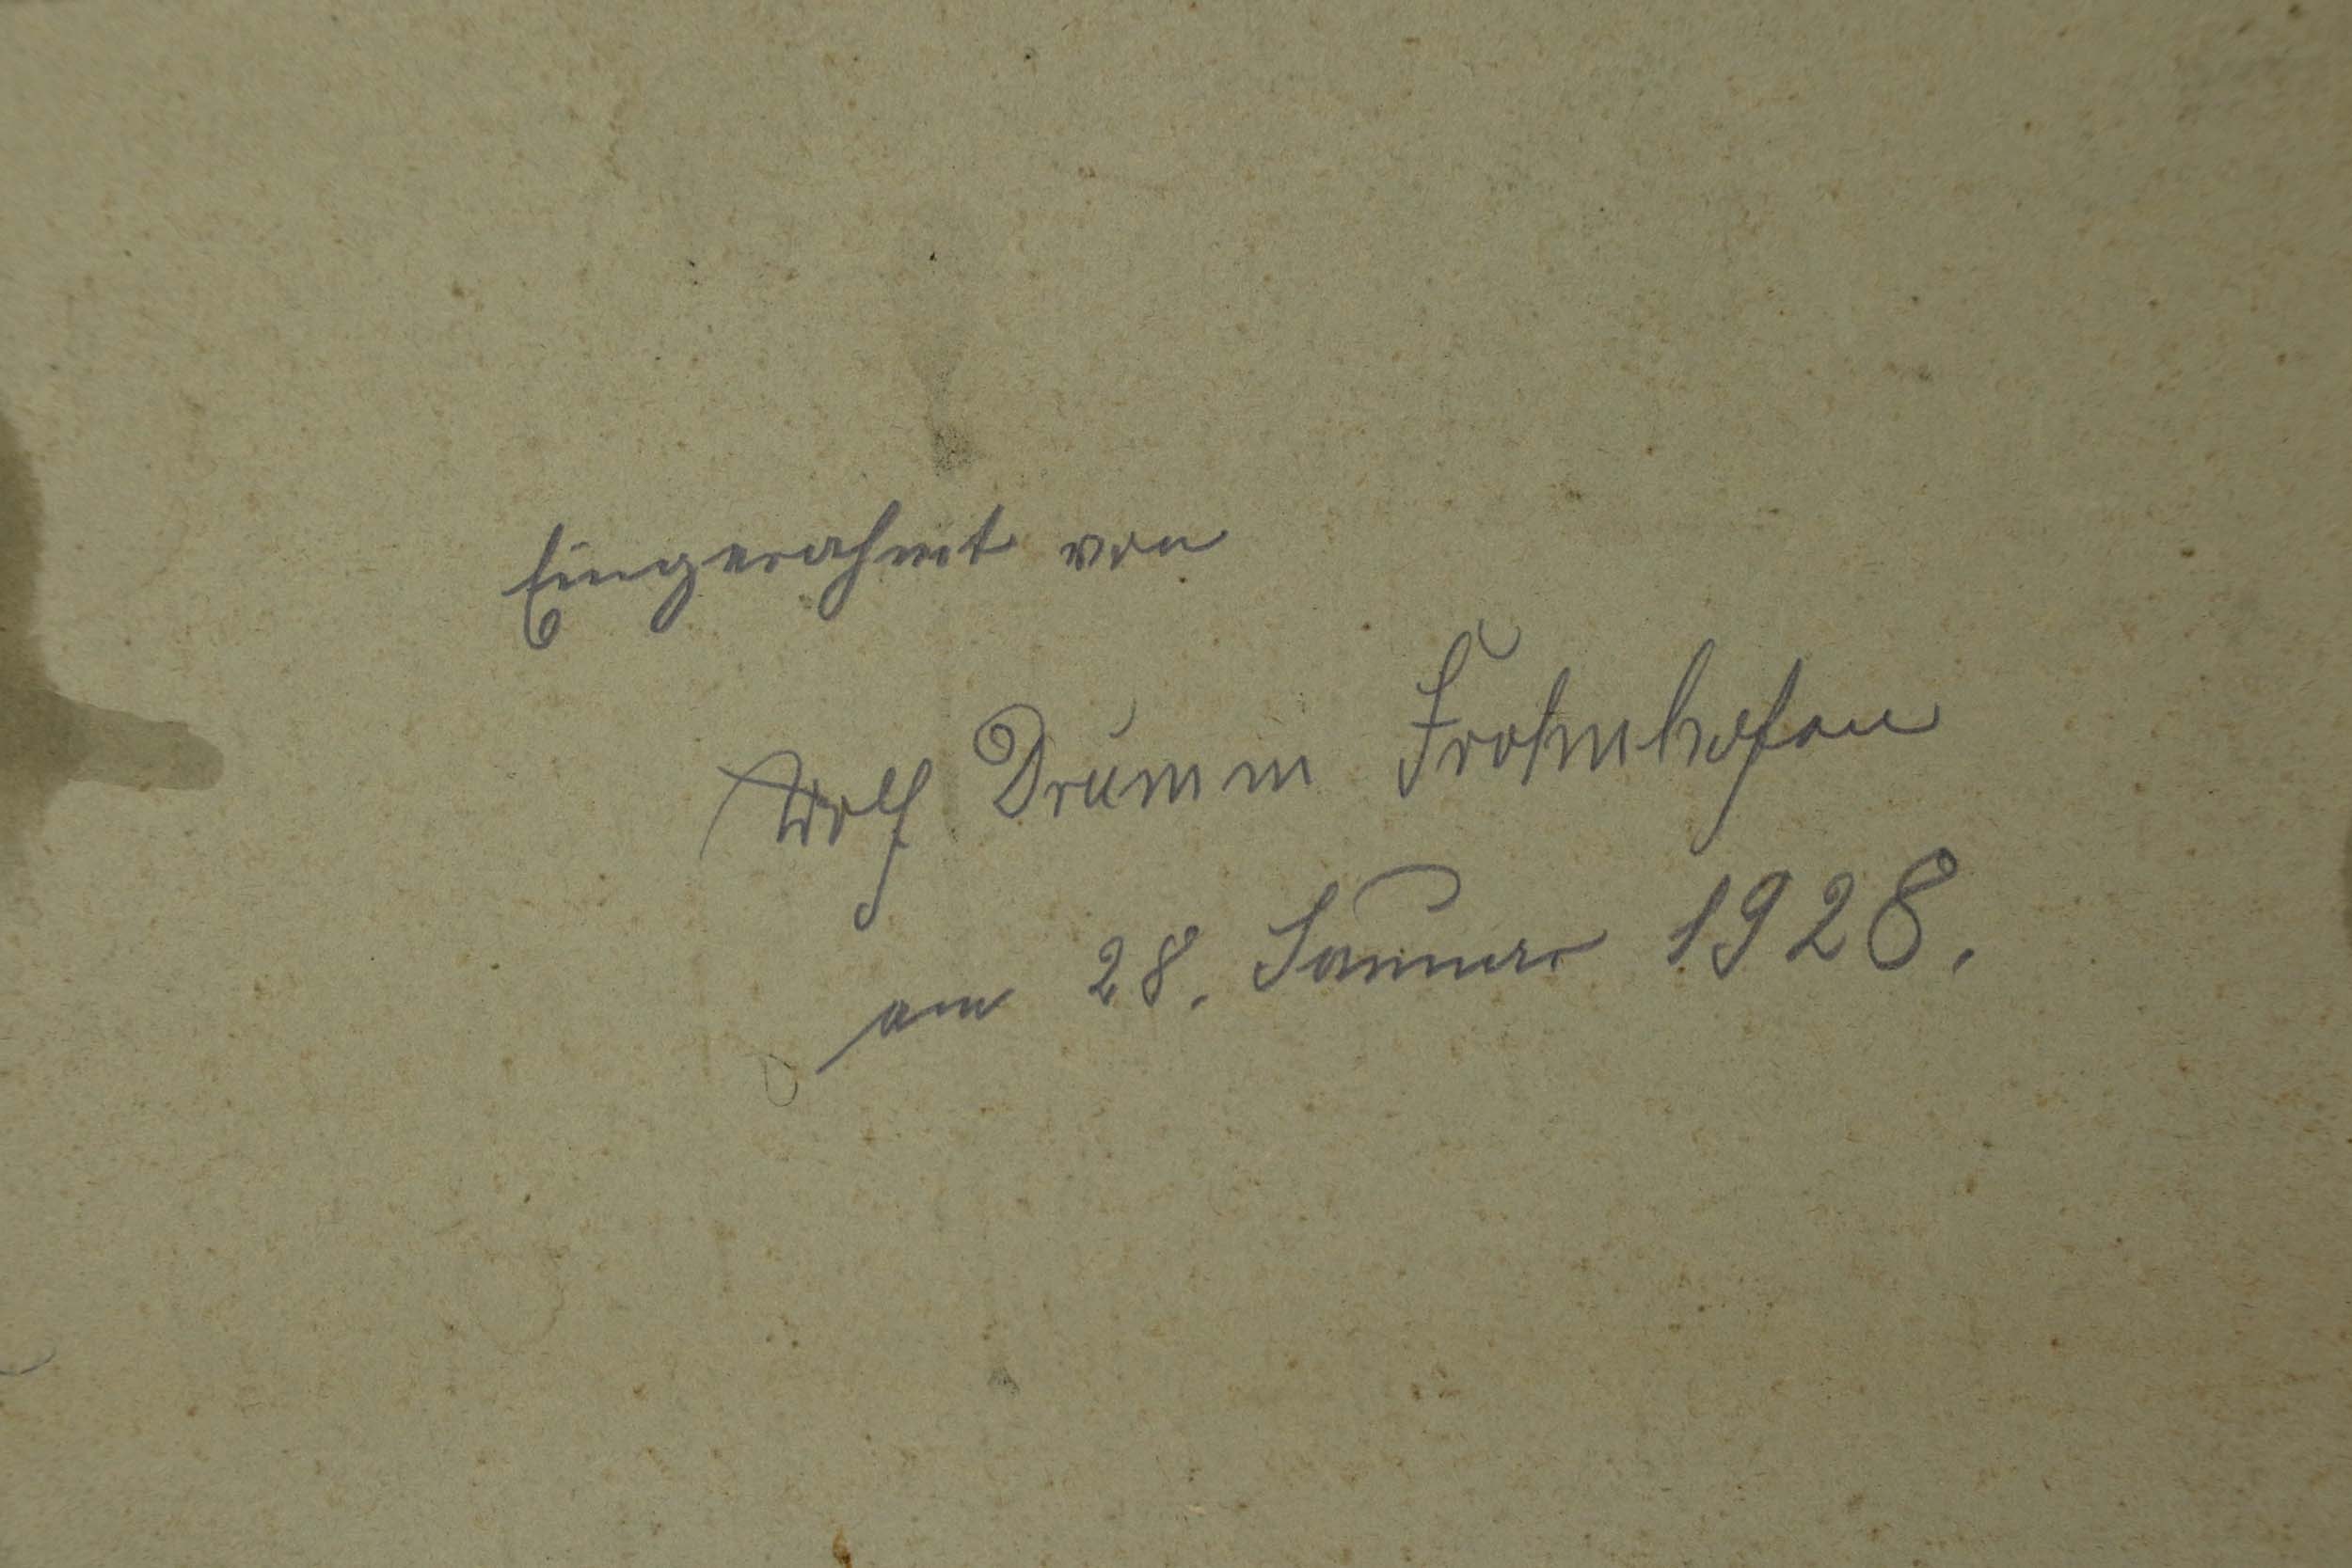 Eingerahmt von
Adolf Drumm Frohnhofen
am 28. Januar 1928.